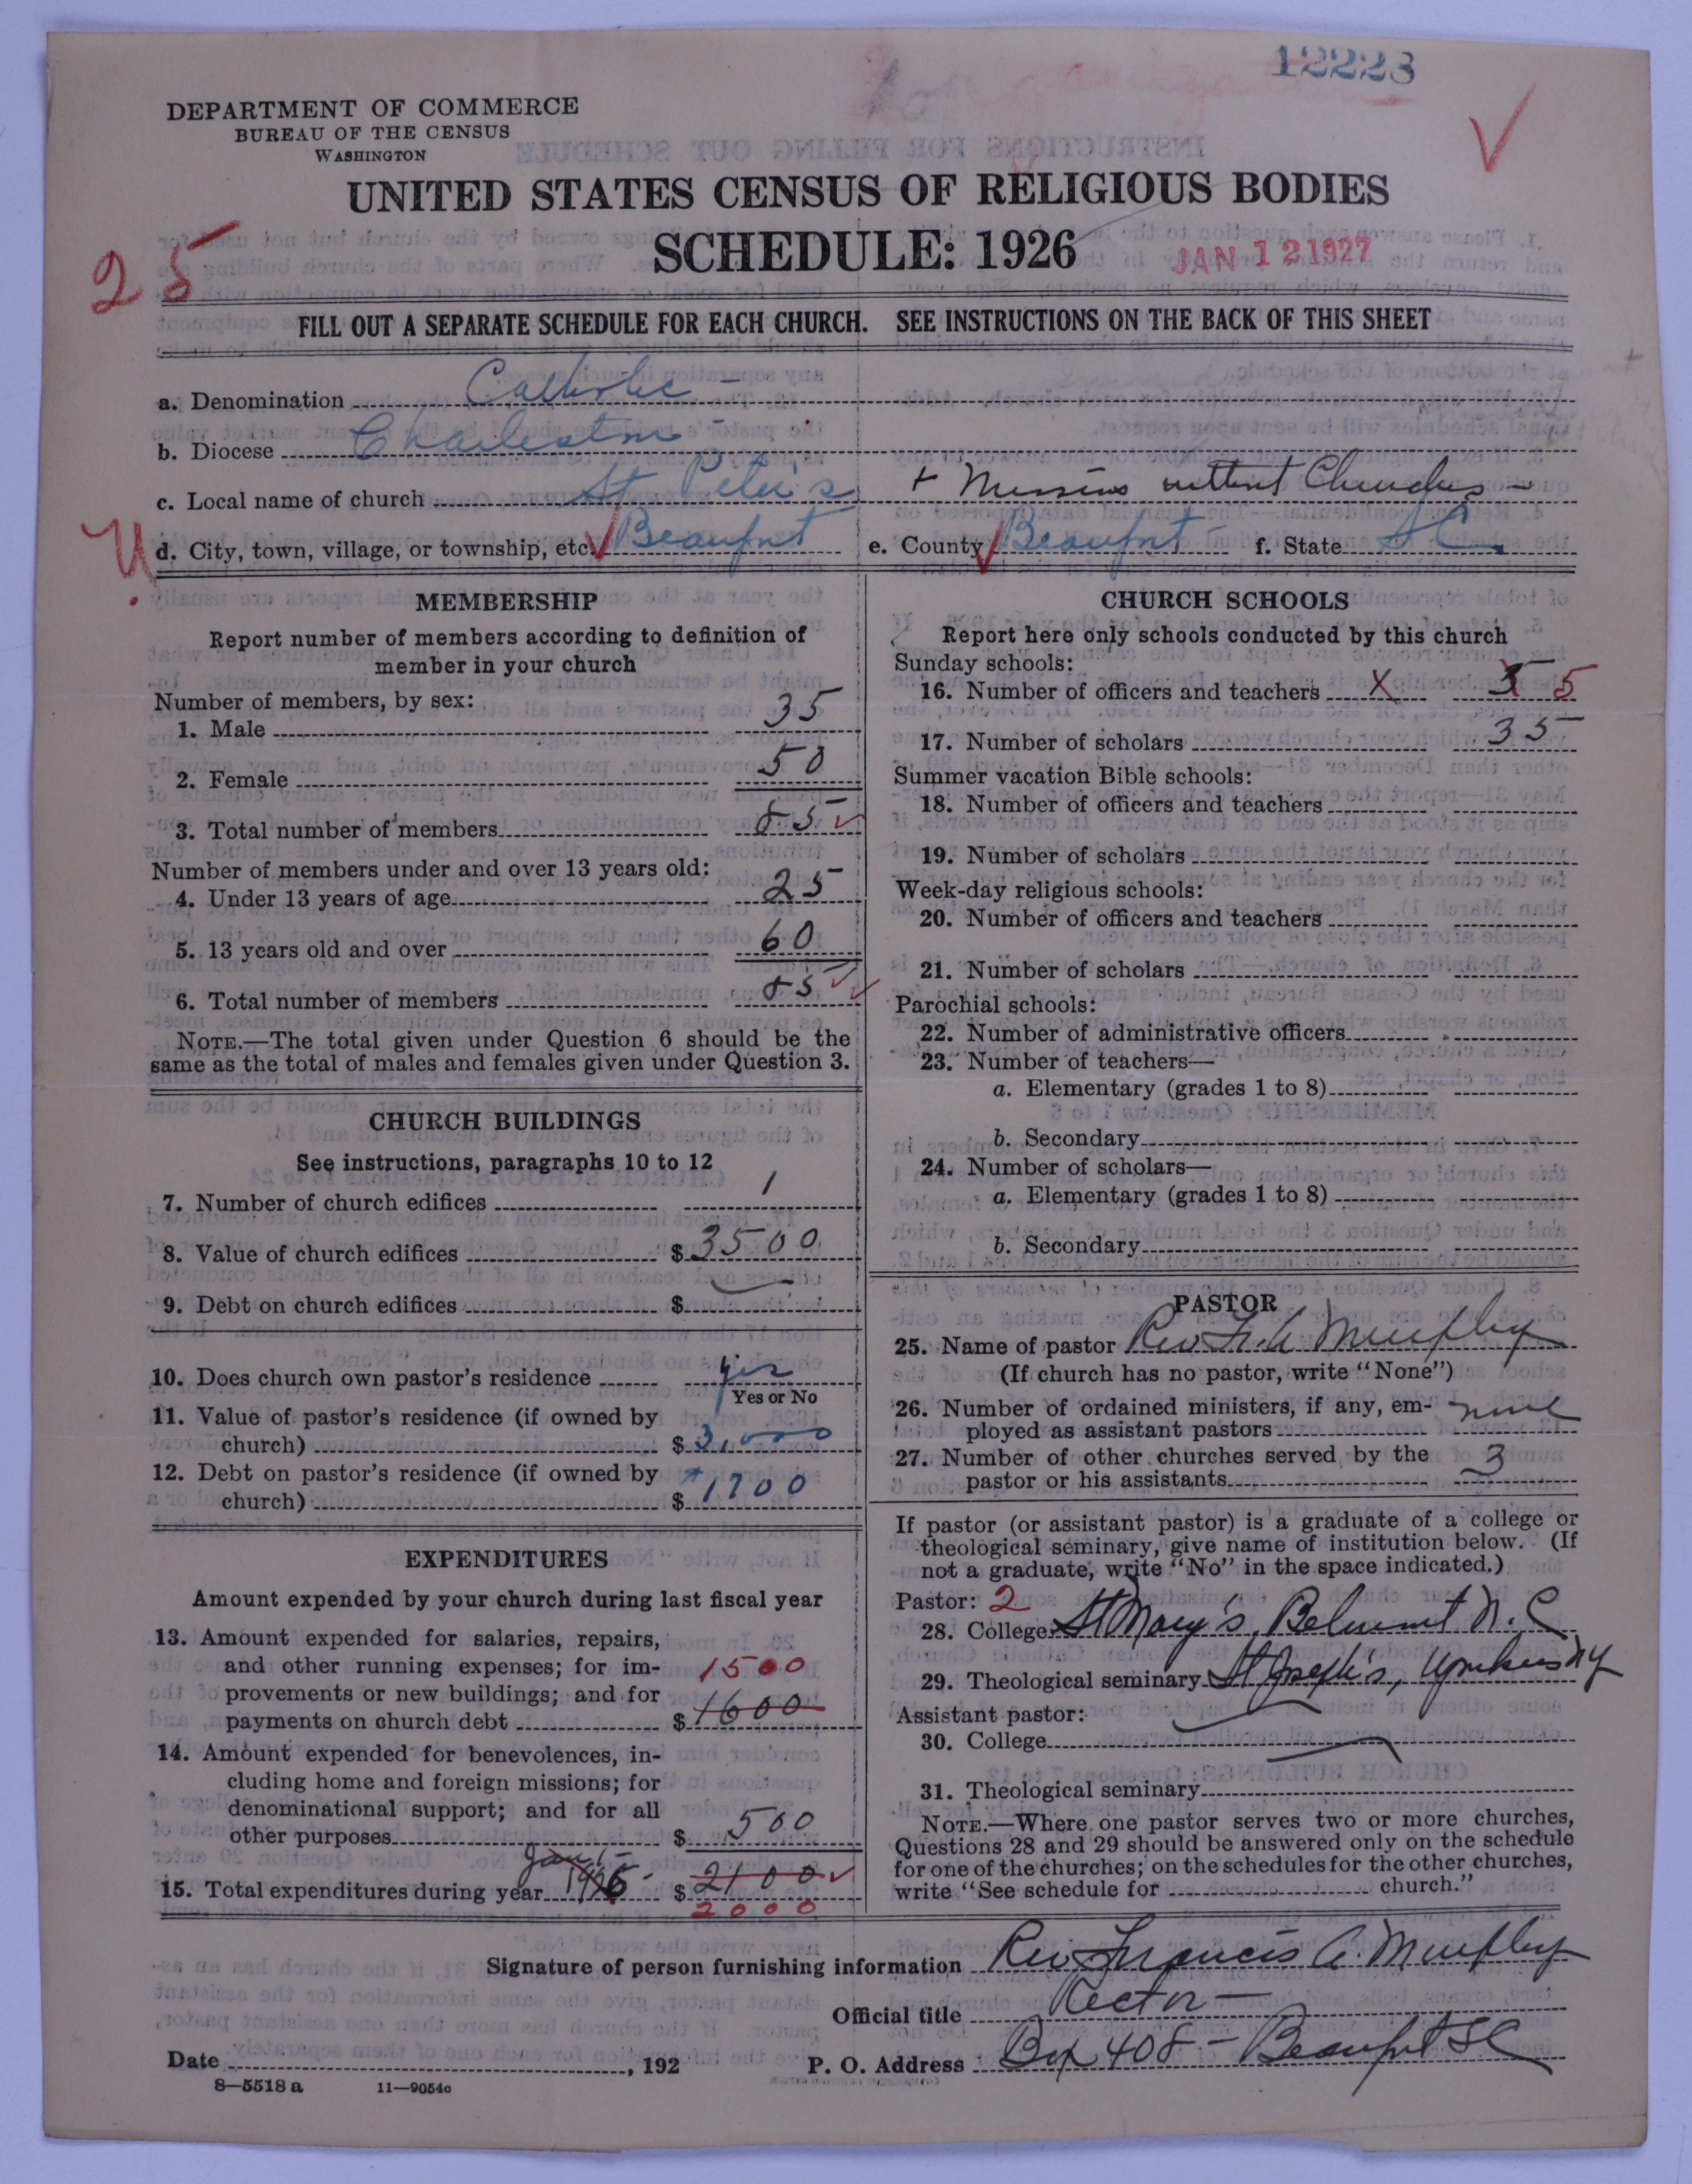 12223
DEPARTMENT OF COMMERCE
BUREAU OF THE CENSUS
WASHINGTON
UNITED STATES CENSUS OF RELIGIOUS BODIES
SCHEDULE: 1926
JAN 12 1927
25
FILL OUT A SEPARATE SCHEDULE FOR EACH CHURCH. SEE INSTRUCTIONS ON THE BACK OF THIS SHEET
a. Denomination Catholic -
b. Diocese Charleston -
c. Local name of church St Peter's + Missions without Churches -
d. City, town, village, or township, etc. Beaufort e. County Beaufort f. State S C.
MEMBERSHIP
Report number of members according to definition of
member in your church
Number of members, by sex:
1. Male 35
2. Female 50
3. Total number of members 85
Number of members under and over 13 years old:
4. Under 13 years of age 25
5. 13 years old and over 60
6. Total number of members 85
NOTE.—The total given under Question 6 should be the
same as the total of males and females given under Question 3.
CHURCH BUILDINGS
See instructions, paragraphs 10 to 12
7. Number of church edifices 1
8. Value of church edifices $ 3500
9. Debt on church edifices $ —
10. Does church own pastor's residence yes
Yes or No
11. Value of pastor's residence (if owned by
church) $ 3,000
12. Debt on pastor's residence (if owned by
church) $ 1700
EXPENDITURES
Amount expended by your church during last fiscal year
13. Amount expended for salaries, repairs,
and other running expenses; for im- 1500
provements or new buildings; and for
payments on church debt $ 1600
14. Amount expended for benevolences, in-
cluding home and foreign missions; for
denominational support; and for all
other purposes $ 500
Jan 1-
15. Total expenditures during year 1926 $ 2100
2000
CHURCH SCHOOLS
Report here only schools conducted by this church
Sunday schools:
16. Number of officers and teachers X 3 5
17. Number of scholars 35
Summer vacation Bible schools:
18. Number of officers and teachers
19. Number of scholars
Week-day religious schools:
20. Number of officers and teachers
21. Number of scholars
Parochial schools:
22. Number of administrative officers
23. Number of teachers—
a. Elementary (grades 1 to 8)
b. Secondary
24. Number of scholars—
a. Elementary (grades 1 to 8)
b. Secondary
PASTOR
25. Name of pastor Rev Fr. A Murphy
(If church has no pastor, write "None")
26. Number of ordained ministers, if any, em- none
ployed as assistant pastors
27. Number of other churches served by the 3
pastor or his assistants
If pastor (or assistant pastor) is a graduate of a college or
theological seminary, give name of institution below. (If
not a graduate, write "No" in the space indicated.)
Pastor: 2
28. College St Mary's, Belmont N. C
29. Theological seminary St Joseph's, Yonkers NY
Assistant pastor:
30. College
31. Theological seminary
NOTE.—Where one pastor serves two or more churches,
Questions 28 and 29 should be answered only on the schedule
for one of the churches; on the schedules for the other churches,
write "See schedule for church."
Signature of person furnishing information Rev Francis A. Murphy
Official title Rector -
Date , 192 P. O. Address Box 408 - Beaufort SC
8—5518 a 11—9054c